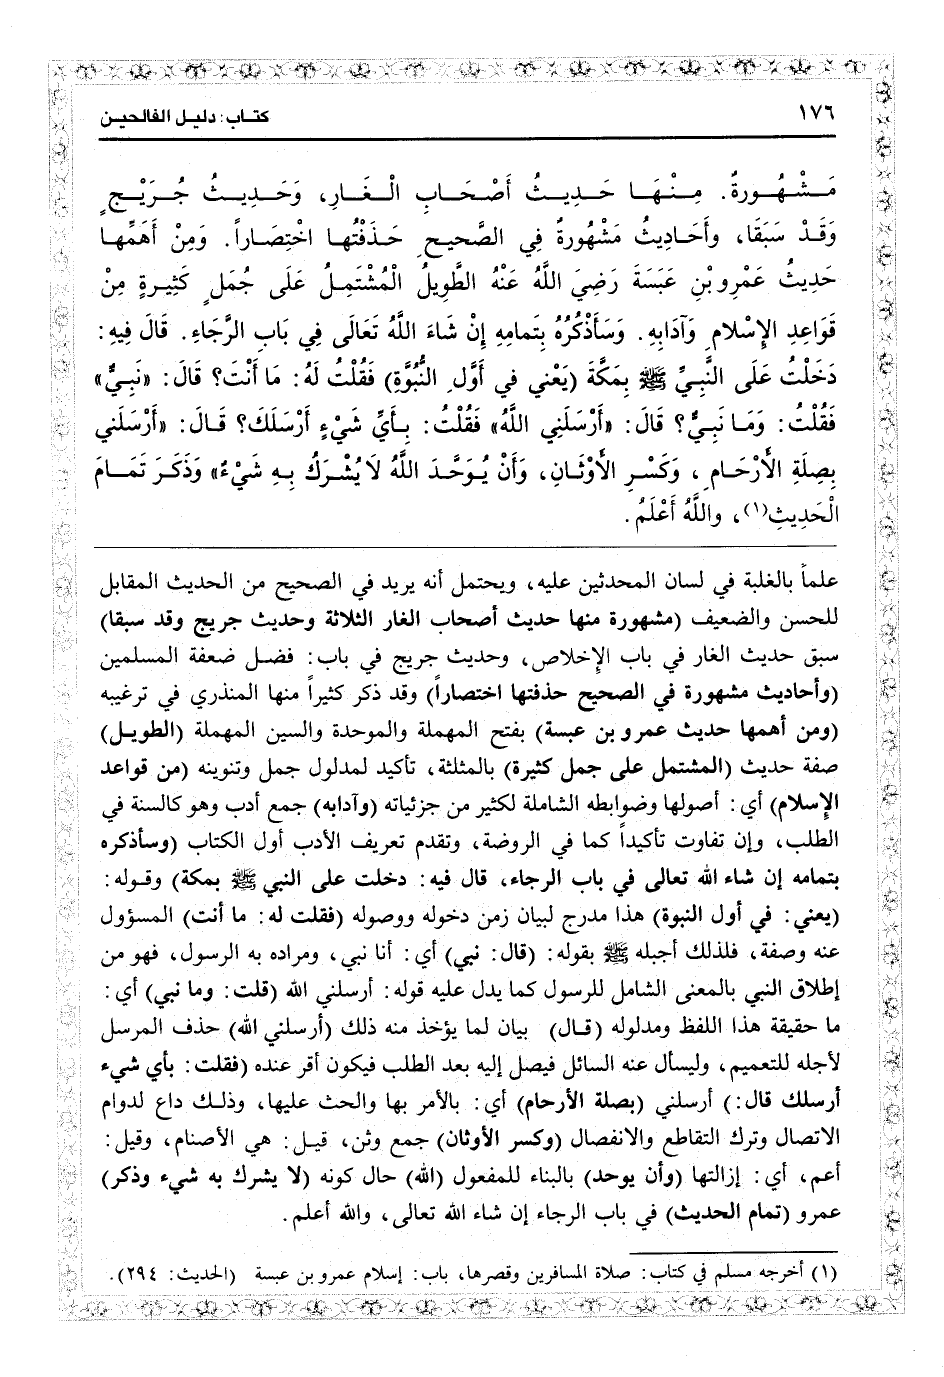 ١٧٦
كتاب: دليل الفالحين
مَشْهُورَةٌ. مِنْهَا حَدِيثُ أَصْحَابِ الْغَارِ، وَحَدِيثُ جُرَيْجٍ
وَقَدْ سَبَقَا، وأَحَادِيثُ مَشْهُورَةٌ فِي الصَّحيحِ حَذَفْتُها اخْتِصَاراً. وَمِنْ أَهَمِّها
حَدِيثُ عَمْرِو بْنِ عَبَسَةَ رَضِيَ اللَّهُ عَنْهُ الطَّوِيلُ الْمُشْتَمِلُ عَلَى جُمَلٍ كَثِيرَةٍ مِنْ
قَوَاعِدِ الإِسْلامِ وَآدَابِهِ. وَسَأَذْكُرُهُ بِتَمامِهِ إِنْ شَاءَ اللَّهُ تَعَالَى فِي بَابِ الرَّجَاءِ. قَالَ فِيهِ:
دَخَلْتُ عَلَى النَّبِيِّ ﷺ بِمَكَّةَ (يَعْنِي في أَوَّلِ النُّبُوَّةِ) فَقُلْتُ لَهُ: مَا أَنْتَ؟ قَالَ: «نَبِيٌّ»
فَقُلْتُ: وَمَا نَبِيٌّ؟ قَالَ: «أَرْسَلَنِي اللَّهُ» فَقُلْتُ: بِأَيِّ شَيْءٍ أَرْسَلَكَ؟ قَالَ: «أَرْسَلَنِي
بِصِلَةِ الأَرْحَامِ، وَكَسْرِ الأَوْثَانِ، وَأَنْ يُوَحَّدَ اللَّهُ لَا يُشْرَكُ بِهِ شَيْءٌ» وَذَكَرَ تَمَامَ
الْحَدِيثِ(١)، واللَّهُ أَعْلَمُ.
علماً بالغلبة في لسان المحدثين عليه، ويحتمل أنه يريد في الصحيح من الحديث المقابل
للحسن والضعيف (مشهورة منها حديث أصحاب الغار الثلاثة وحديث جريج وقد سبقا)
سبق حديث الغار في باب الإخلاص، وحديث جريج في باب: فضل ضعفة المسلمين
(وأحاديث مشهورة في الصحيح حذفتها اختصاراً) وقد ذكر كثيراً منها المنذري في ترغيبه
(ومن أهمها حديث عمرو بن عبسة) بفتح المهملة والموحدة والسين المهملة (الطويل)
صفة حديث (المشتمل على جمل كثيرة) بالمثلثة، تأكيد لمدلول جمل وتنوينه (من قواعد
الإسلام) أي: أصولها وضوابطه الشاملة لكثير من جزئياته (وآدابه) جمع أدب وهو كالسنة في
الطلب، وإن تفاوت تأكيداً كما في الروضة، وتقدم تعريف الأدب أول الكتاب (وسأذكره
بتمامه إن شاء الله تعالى في باب الرجاء، قال فيه: دخلت على النبي ﷺ بمكة) وقوله:
(يعني: في أول النبوة) هذا مدرج لبيان زمن دخوله ووصوله (فقلت له: ما أنت) المسؤول
عنه وصفة، فلذلك أجبله ﷺ بقوله: (قال: نبي) أي: أنا نبي، ومراده به الرسول، فهو من
إطلاق النبي بالمعنى الشامل للرسول كما يدل عليه قوله: أرسلني الله (قلت: وما نبي) أي:
ما حقيقة هذا اللفظ ومدلوله (قال) بيان لما يؤخذ منه ذلك (أرسلني الله) حذف المرسل
لأجله للتعميم، وليسأل عنه السائل فيصل إليه بعد الطلب فيكون أقر عنده (فقلت: بأي شيء
أرسلك قال:) أرسلني (بصلة الأرحام) أي: بالأمر بها والحث عليها، وذلك داع لدوام
الاتصال وترك التقاطع والانفصال (وكسر الأوثان) جمع وثن، قيل: هي الأصنام، وقيل:
أعم، أي: إزالتها (وأن يوحد) بالبناء للمفعول (الله) حال كونه (لا يشرك به شيء وذكر)
عمرو (تمام الحديث) في باب الرجاء إن شاء الله تعالى، والله أعلم.
(١) أخرجه مسلم في كتاب: صلاة المسافرين وقصرها، باب: إسلام عمرو بن عبسة (الحديث: ٢٩٤).